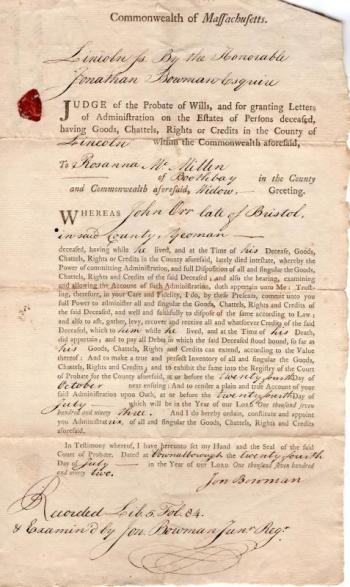 Commonwealth of Massachusetts.
Lincoln ss. By the Honorable
Jonathan Bowman Esquire
JUDGE of the Probate of Wills, and for granting Letters
of Administration on the Estates of Persons deceased,
having Goods, Chattels, Rights or Credits in the County of
Lincoln within the Commonwealth aforesaid,
To Rosanna McMillen
of Boothbay in the County
and Commonwealth aforesaid, Widow. Greeting.
WHEREAS John Orr late of Bristol,
in said County, Yeoman
deceased, having while he lived, and at the Time of his Decease, Goods,
Chattels, Rights or Credits in the County aforesaid, lately died intestate, whereby the
Power of committing Administration, and full Disposition of all and singular the Goods,
Chattels, Rights and Credits of the said Deceased; and also the hearing, examining
and allowing the Account of such Administration, doth appertain unto Me: Trust-
ing, therefore, in your Care and Fidelity, I do, by these Presents, commit unto you
full Power to administer all and singular the Goods, Chattels, Rights and Credits of
the said Deceased, and well and faithfully to dispose of the same according to Law;
and also to ask, gather, levy, recover and receive all and whosoever Credits of the said
Deceased, which to him while he lived, and at the Time of his Death,
did appertain; and to pay all Debts in which the said Deceased stood bound, so far as
his Goods, Chattels, Rights and Credits can extend, according to the Value
thereof: And to make a true and perfect Inventory of all and singular the Goods,
Chattels, Rights and Credits; and to exhibit the same into the Registry of the Court
of Probate for the County aforesaid, at or before the Twenty fourth Day of
October next ensuing: And to render a plain and true Account of your
said Administration upon Oath, at or before the Twenty fourth Day of
July which will be in the Year of our LORD One thousand seven
hundred and ninety three. And I do hereby ordain, constitute and appoint
you Administratrix, of all and singular the Goods, Chattels, Rights and Credits
aforesaid.
In Testimony whereof, I have hereunto set my Hand and the Seal of the said
Court of Probate. Dated at Pownalborough the twenty fourth
Day of July in the Year of our LORD One thousand seven hundred
and ninety two.
Jon Bowman
Recorded Lib. 5. Fol. 84.
& Examin'd by Jon. Bowman Junr. Regr.